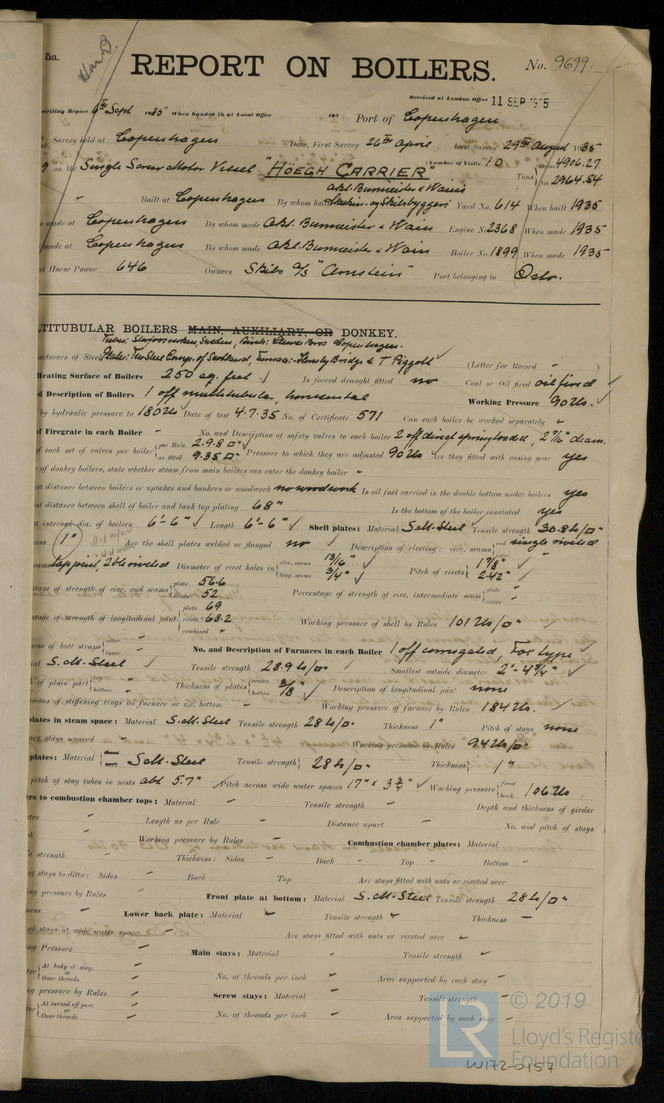 5a.
REPORT ON BOILERS.
No. 9699.
Received at London Office 11 SEP 1935
writing Report 6th Sept 1935 When handed in at Local Office 193 Port of Copenhagen
Survey held at Copenhagen Date, First Survey 26th April Last Survey 29th August 1935
on the Single Screw Motor Vessel "HÖEGH CARRIER" (Number of Visits 10 Gross 4906.27
Tons Net 2964.54
Built at Copenhagen By whom built Akt. Burmeister & Wains Maskin- og Skibsbyggeri Yard No. 614 When built 1935
made at Copenhagen By whom made Akt. Burmeister & Wain Engine No. 2368 When made 1935
made at Copenhagen By whom made Akt. Burmeister & Wain Boiler No. 1899 When made 1935
Horse Power 646 Owners Skibs A/S "Arnstein" Port belonging to Oslo.
LTITUBULAR BOILERS MAIN, AUXILIARY, OR DONKEY.
facturers of Steel Plates: The Steel Comp. of Scotland, Furnace: Horsley Bridge & T Piggott (Letter for Record -
Heating Surface of Boilers 250 sq. feet Is forced draught fitted no Coal or Oil fired oil fired
d Description of Boilers 1 off multitubular, horizontal Working Pressure 90 lbs.
by hydraulic pressure to 180 lbs Date of test 4.7.35 No. of Certificate 571 Can each boiler be worked separately -
of Firegrate in each Boiler - No. and Description of safety valves to each boiler 2 off direct springloaded, 2 7/16" diam.
of each set of valves per boiler per Rule 2.9.8 □" as fitted 9.35 □" Pressure to which they are adjusted 90 lbs Are they fitted with easing gear yes
of donkey boilers, state whether steam from main boilers can enter the donkey boiler -
st distance between boilers or uptakes and bunkers or woodwork no woodwork Is oil fuel carried in the double bottom under boilers yes
st distance between shell of boiler and tank top plating 68" Is the bottom of the boiler insulated yes
st internal dia. of boilers 6'-6" Length 6'-6" Shell plates: Material S.M. Steel Tensile strength 30.8 t/□"
ness 1" Are the shell plates welded or flanged no Description of riveting: circ. seams end single riveted
lap joint, 2ble riveted Diameter of rivet holes in circ. seams 13/16" long. seams 3/4" Pitch of rivets 1 7/8" 2.42"
tage of strength of circ. end seams plate 56.6 rivets 52 Percentage of strength of circ. intermediate seam plate - rivets -
tage of strength of longitudinal joint plate 69 rivets 68.2 combined - Working pressure of shell by Rules 101 lbs/□"
ness of butt straps outer - inner - No. and Description of Furnaces in each Boiler 1 off corrugated, Fox type
ial S.M. Steel Tensile strength 28.9 t/□" Smallest outside diameter 2'-4 3/4"
of plain part top - bottom - Thickness of plates crown bottom 3/8" Description of longitudinal joint none
nsions of stiffening rings on furnace or c.c. bottom - Working pressure of furnace by Rules 184 lbs.
plates in steam space: Material S.M. Steel Tensile strength 28 t/□" Thickness 1" Pitch of stays none
re stays secured - Working pressure by Rules 94 lbs/□"
plates: Material S.M. Steel Tensile strength 28 t/□" Thickness 1"
pitch of stay tubes in nests abt 5.7" Pitch across wide water spaces 17" x 3 3/4" Working pressure front back 106 lbs
ers to combustion chamber tops: Material - Tensile strength - Depth and thickness of girder
tre - Length as per Rule - Distance apart - No. and pitch of stays
h - Working pressure by Rules - Combustion chamber plates: Material -
le strength - Thickness: Sides - Back - Top - Bottom -
of stays to ditto: Sides - Back - Top - Are stays fitted with nuts or riveted over -
ng pressure by Rules - Front plate at bottom: Material S.M. Steel Tensile strength 28 t/□"
ness - Lower back plate: Material - Tensile strength - Thickness -
of stays at wide water space - Are stays fitted with nuts or riveted over -
ng Pressure - Main stays: Material - Tensile strength -
ter At body of stay, or Over threads - No. of threads per inch - Area supported by each stay -
ng pressure by Rules - Screw stays: Material - Tensile strength -
ter At turned off part, or Over threads - No. of threads per inch - Area supported by each stay -
© 2019
Lloyd's Register
Foundation
LR
W172-0157